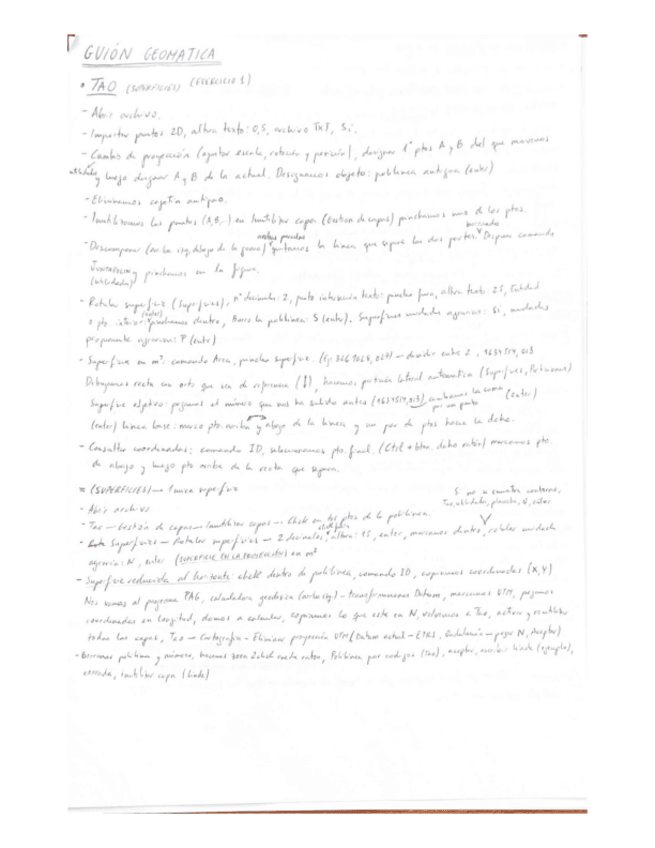 GUIÓN GEOMATICA
• TAO (SUPERFICIES) (EJERCICIO 1)
- Abrir archivo.
- Importar puntos 2D, altura texto: 0,5, archivo TXT, Si.
- Cambio de proyección (ajustar escala, rotación y posición), designar 1º ptos A y B del que movemos
utilidades y luego designar A y B de la actual. Designamos objeto: polilinea antigua (enter)
- Eliminamos cajetín antiguo.
- Inutilizamos los puntos (A, B, ..) en Inutilizar capas (Gestion de capas) pinchamos uno de los ptos.
- Descomponer (en la izq, dibujo de la goma) quitamos la linea que separe las dos partes. Despues comando
y pinchamos en la figura.
(utilidades)
- Rotular superficie (Superficies), nº decimales: 2, punto intersección texto: pinchar fuera, altura texto: 25, Entidad
o pto. interior: pinchamos dentro, borro la polilinea: S (enter). Superficie unidades agrarias: Si, unidades
agrarias: P (enter)
- Superficie en m²: comando Area, pinchar superficie. (Ej: 3269028,027) → dividir entre 2, 1634514,013
Dibujamos recta con orto que sea de referencia (↕), hacemos partición lateral automatica (Superficies, Particiones)
Superficie objetivo: pegamos el número que nos ha salido antes (1634514,013) cambiamos la coma (enter)
por un punto
(enter) linea base: marco pto. arriba y abajo de la linea y un par de ptos hacia la dcha.
- Consultar coordenadas: comando ID, seleccionamos pto. final. (Ctrl + btn. dcho ratón) marcamos pto.
de abajo y luego pto arriba de la recta que separa.
= (SUPERFICIES) → 1 unica superficie
- Abrir archivo
- Tao → Gestión de capas → Inutilizar capas → Click en los ptos de la polilinea.
- Superficies → Rotular superficies → 2 decimales, altura: 15, enter, marcamos dentro, rotular unidades
agraria: N, enter (SUPERFICIE EN LA PROYECCIÓN) en m²
- Superficie reducida al horizonte: click dentro de polilinea, comando ID, copiamos coordenadas (X, Y)
Nos vamos al programa PAG, calculadora geodesica (arriba izq) - transformaciones Datums, marcamos UTM, pegamos
coordenadas en longitud, damos a calcular, copiamos lo que este en N, volvemos a Tao, activar y reutilizar
todas las capas, Tao → Cartografia - Eliminar proyección UTM (Datum actual - ETRS, Ondulación → pegar N, Aceptar)
- Borramos polilinea y número, hacemos zoom 2 click rueda raton, Polilinea por codigos (Tao), aceptar, escribir linde (ejemplo),
cerrada, inutilizar capa (linde)